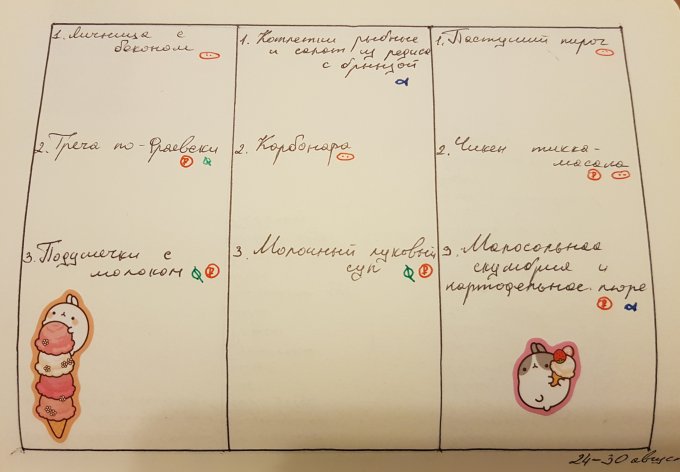 1. Яичница с
беконом
2. Греча по-Фраевски
3. Подушечки с
молоком
1. Котлетки рыбные
и салат из редиса
с брынзой
2. Карбонара
3. Молочный луковый
суп
1. Пастуший пирог
2. Чикен тикка-
масала
3. Малосольная
скумбрия и
картофельное пюре
24-30 август